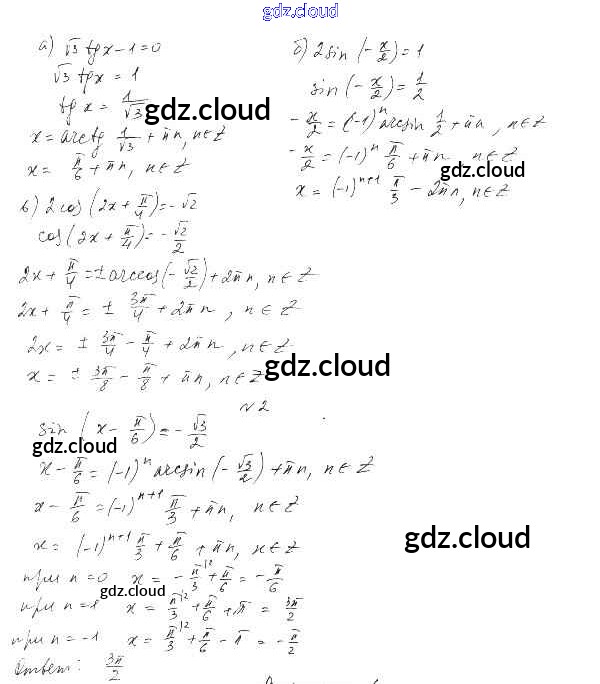 gdz.cloud
а) √3 tg x − 1 = 0
√3 tg x = 1
tg x = 1/√3
x = arctg 1/√3 + πn, n∈Z
x = π/6 + πn, n∈Z
б) 2 sin (− x/2) = 1
sin (− x/2) = 1/2
− x/2 = (−1)^n arcsin 1/2 + πn, n∈Z
− x/2 = (−1)^n π/6 + πn, n∈Z
x = (−1)^(n+1) π/3 − 2πn, n∈Z
gdz.cloud
gdz.cloud
в) 2 cos (2x + π/4) = − √2
cos (2x + π/4) = − √2/2
2x + π/4 = ± arccos (− √2/2) + 2πn, n∈Z
2x + π/4 = ± 3π/4 + 2πn, n∈Z
2x = ± 3π/4 − π/4 + 2πn, n∈Z
x = ± 3π/8 − π/8 + πn, n∈Z
gdz.cloud
N2
sin (x − π/6) = − √3/2
gdz.cloud
x − π/6 = (−1)^n arcsin (− √3/2) + πn, n∈Z
x − π/6 = (−1)^(n+1) π/3 + πn, n∈Z
x = (−1)^(n+1) π/3 + π/6 + πn, n∈Z
gdz.cloud
при n = 0 x = − π/3 + π/6 = − π/6
gdz.cloud
при n = 1 x = π/3 + π/6 + π = 3π/2
при n = −1 x = π/3 + π/6 − π = − π/2
Ответ: 3π/2